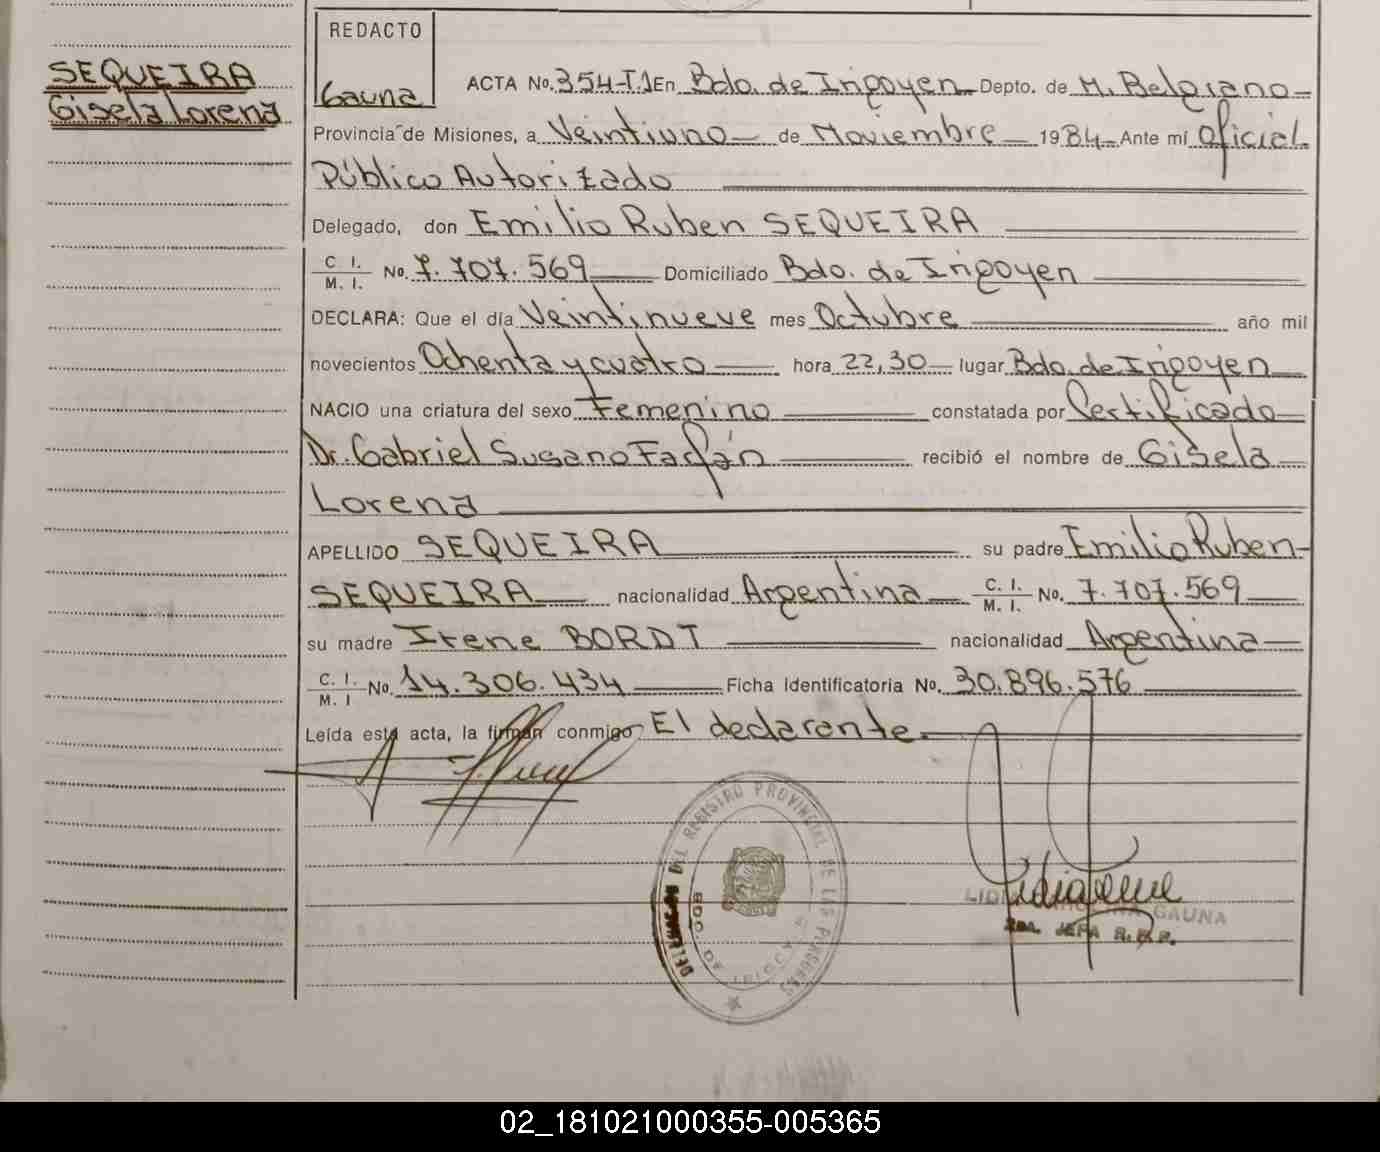 REDACTO
Gauna
SEQUEIRA
Gisela Lorena
ACTA No. 354-T.1 En Bdo. de Irigoyen Depto. de M. Belgrano
Provincia de Misiones, a Veintiuno de Noviembre 1984 Ante mí Oficial
Público Autorizado
Delegado, don Emilio Ruben SEQUEIRA
C. I. / M. I. No. 7.707.569 Domiciliado Bdo. de Irigoyen
DECLARA: Que el día Veintinueve mes Octubre año mil
novecientos Ochenta y cuatro hora 22,30 lugar Bdo. de Irigoyen
NACIO una criatura del sexo Femenino constatada por Certificado
Dr. Gabriel Susano Farfán recibió el nombre de Gisela
Lorena
APELLIDO SEQUEIRA su padre Emilio Ruben
SEQUEIRA nacionalidad Argentina C. I. / M. I. No. 7.707.569
su madre Irene BORDT nacionalidad Argentina
C. I. / M. I No. 14.306.434 Ficha Identificatoria No. 30.896.576
Leída esta acta, la firman conmigo El declarante.
DEL REGISTRO PROVINCIAL DE LAS PERSONAS
BDO. DE
GAUNA
JEFA R.P.P.
02_181021000355-005365